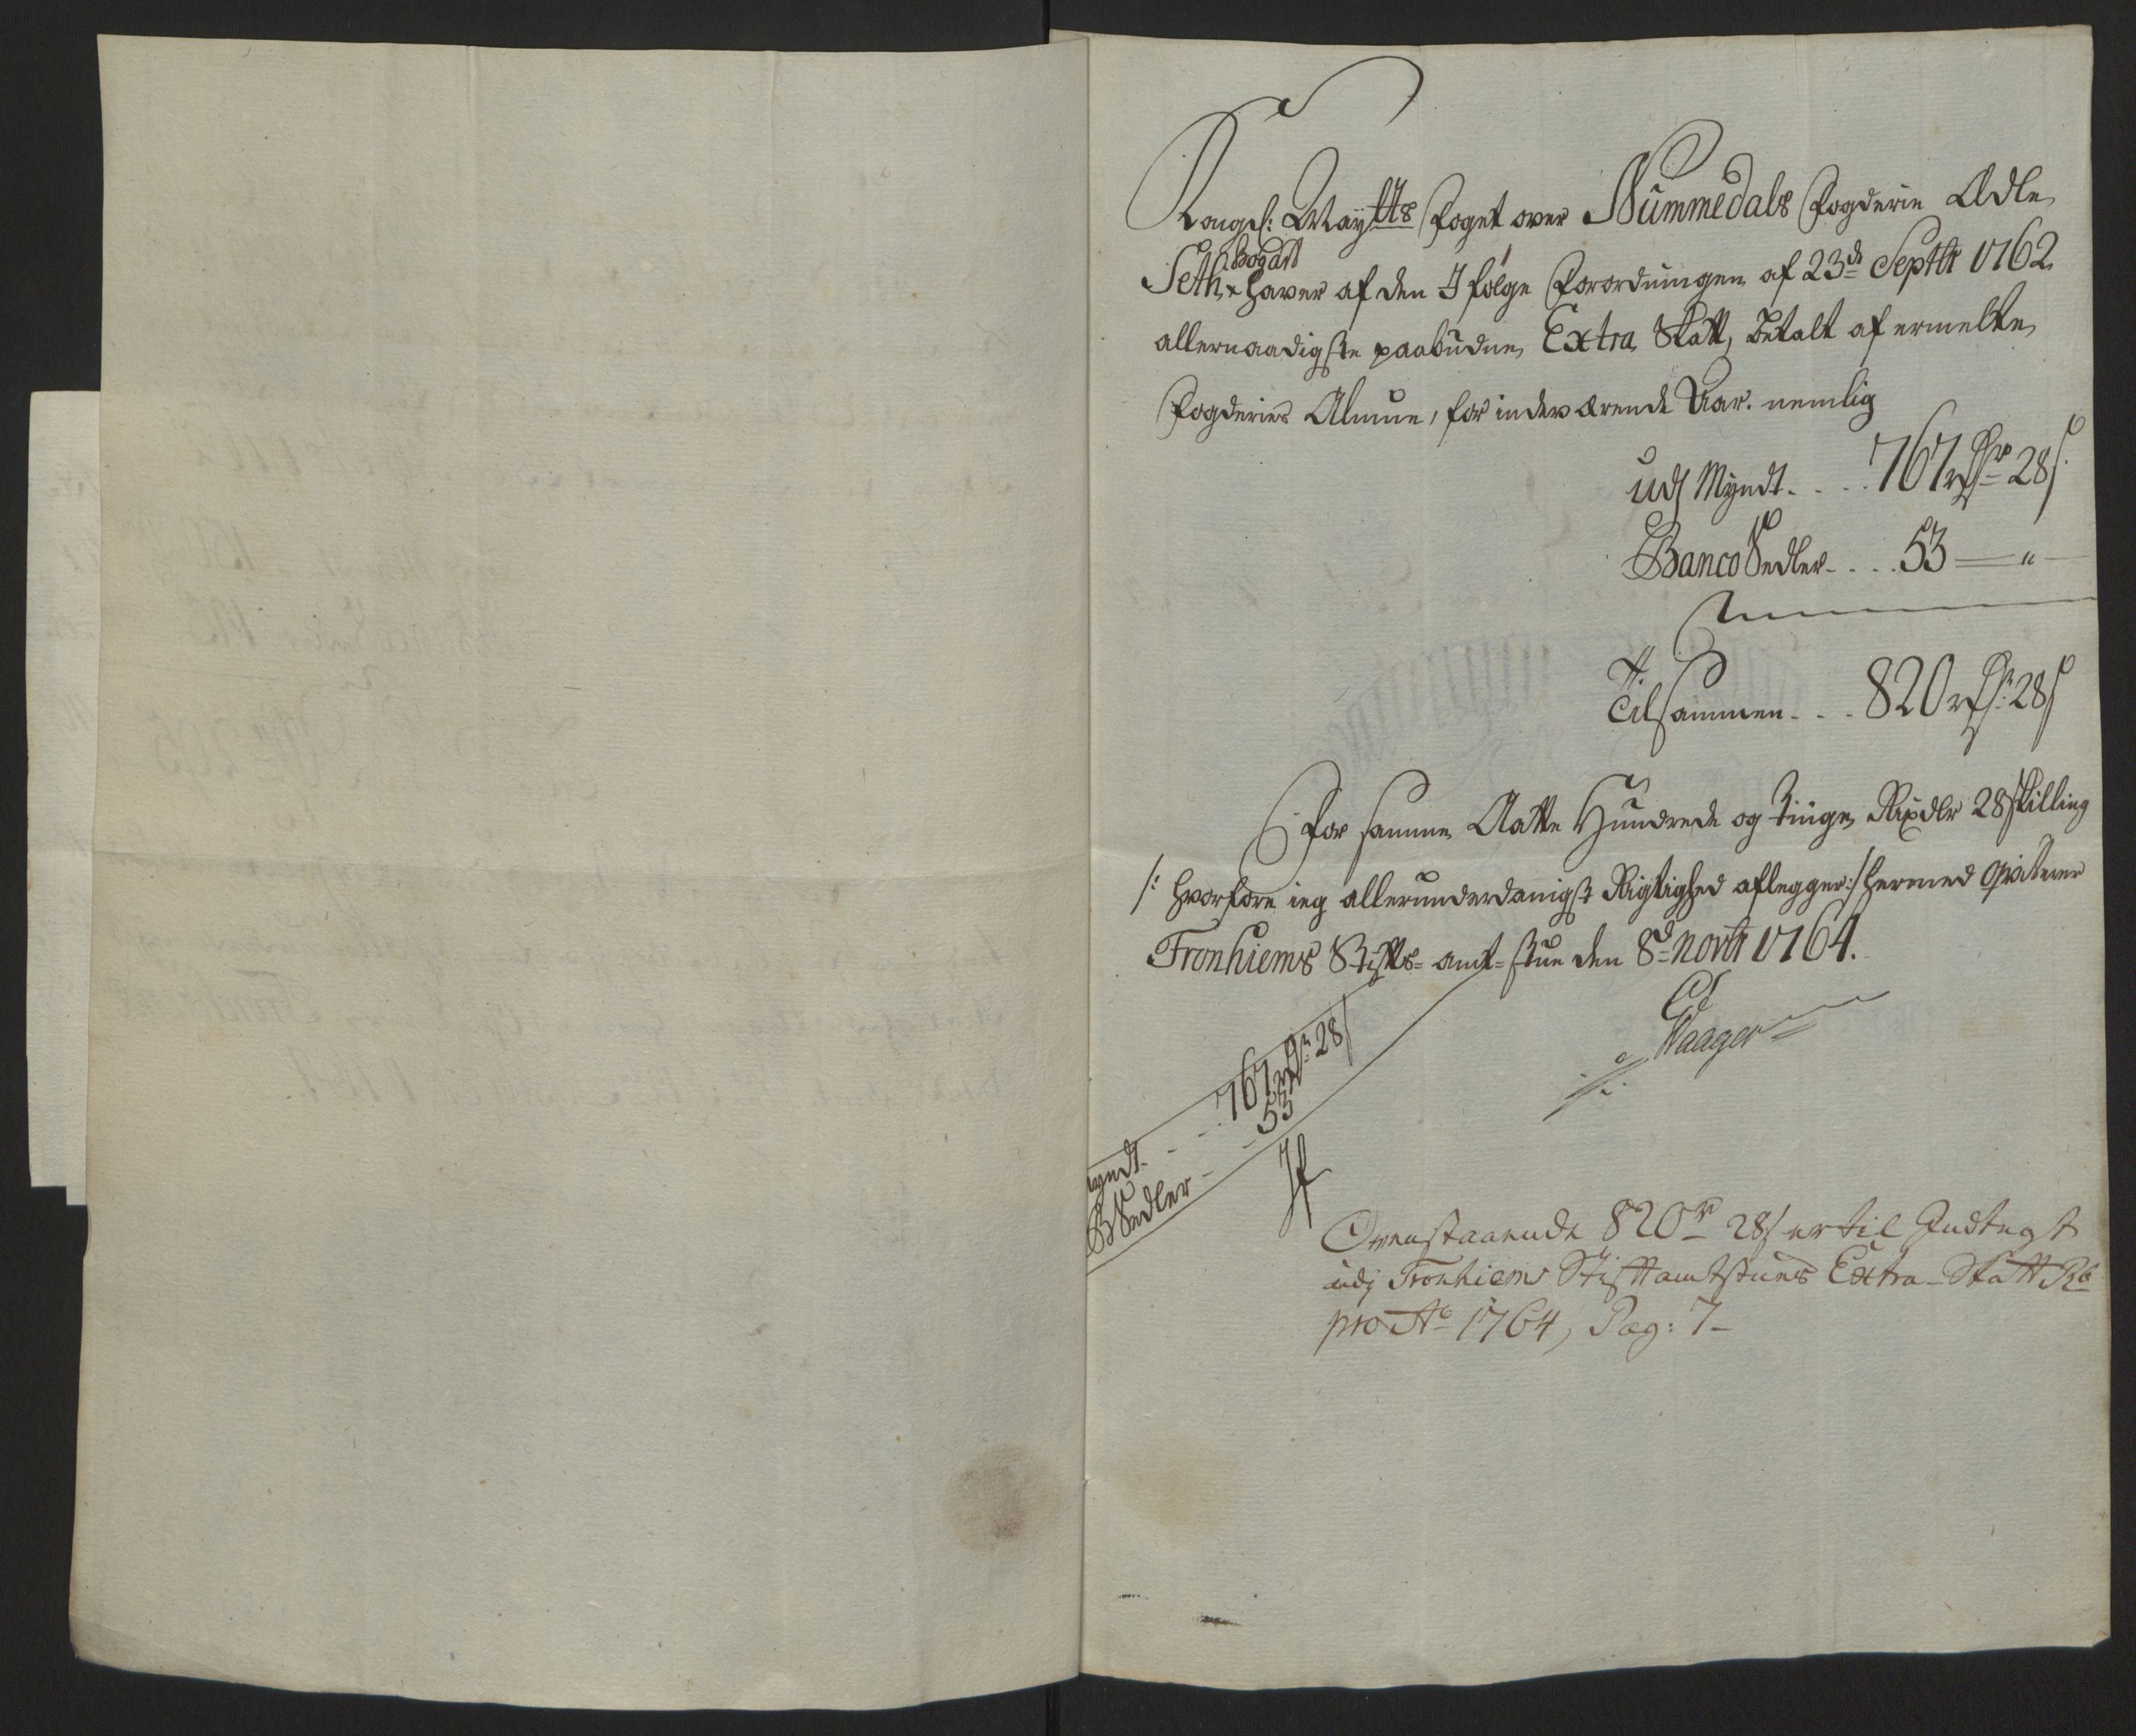 Kongel: Maytts Foget over Nummedals Fogderie Adle
Bogart
Seth + haver af den I følge Forordningen af 23de Septbr 1762
allernaadigste paabudne Extra Skatt, betalt af ermelte
Fogderies Almue, for indeværende Aar. nemlig
udj Myndt . . . 767 rdr 28 s.
Banco Sedler . . . . 53 — " —
Tilsammen . . . 820 rdr: 28 s
For samme Aatte Hundrede og Tiuge Rixdlr 28 skilling
/: hvorfore ieg allerunderdanigst Rigtighed aflegger :/ hermed qvitterer
Tronhiems Stifts-amt-stue den 8de Novbr 1764.
Waager
yndt. - - . 767 rdr: 28 s
B Sedler - - - 53
Ovenstaaende 820 rd 28 s er til Indtegt
udj Tronhiems Stiftamtstues Extra-Skatt Rb
pro Ao 1764, Pag: 7-